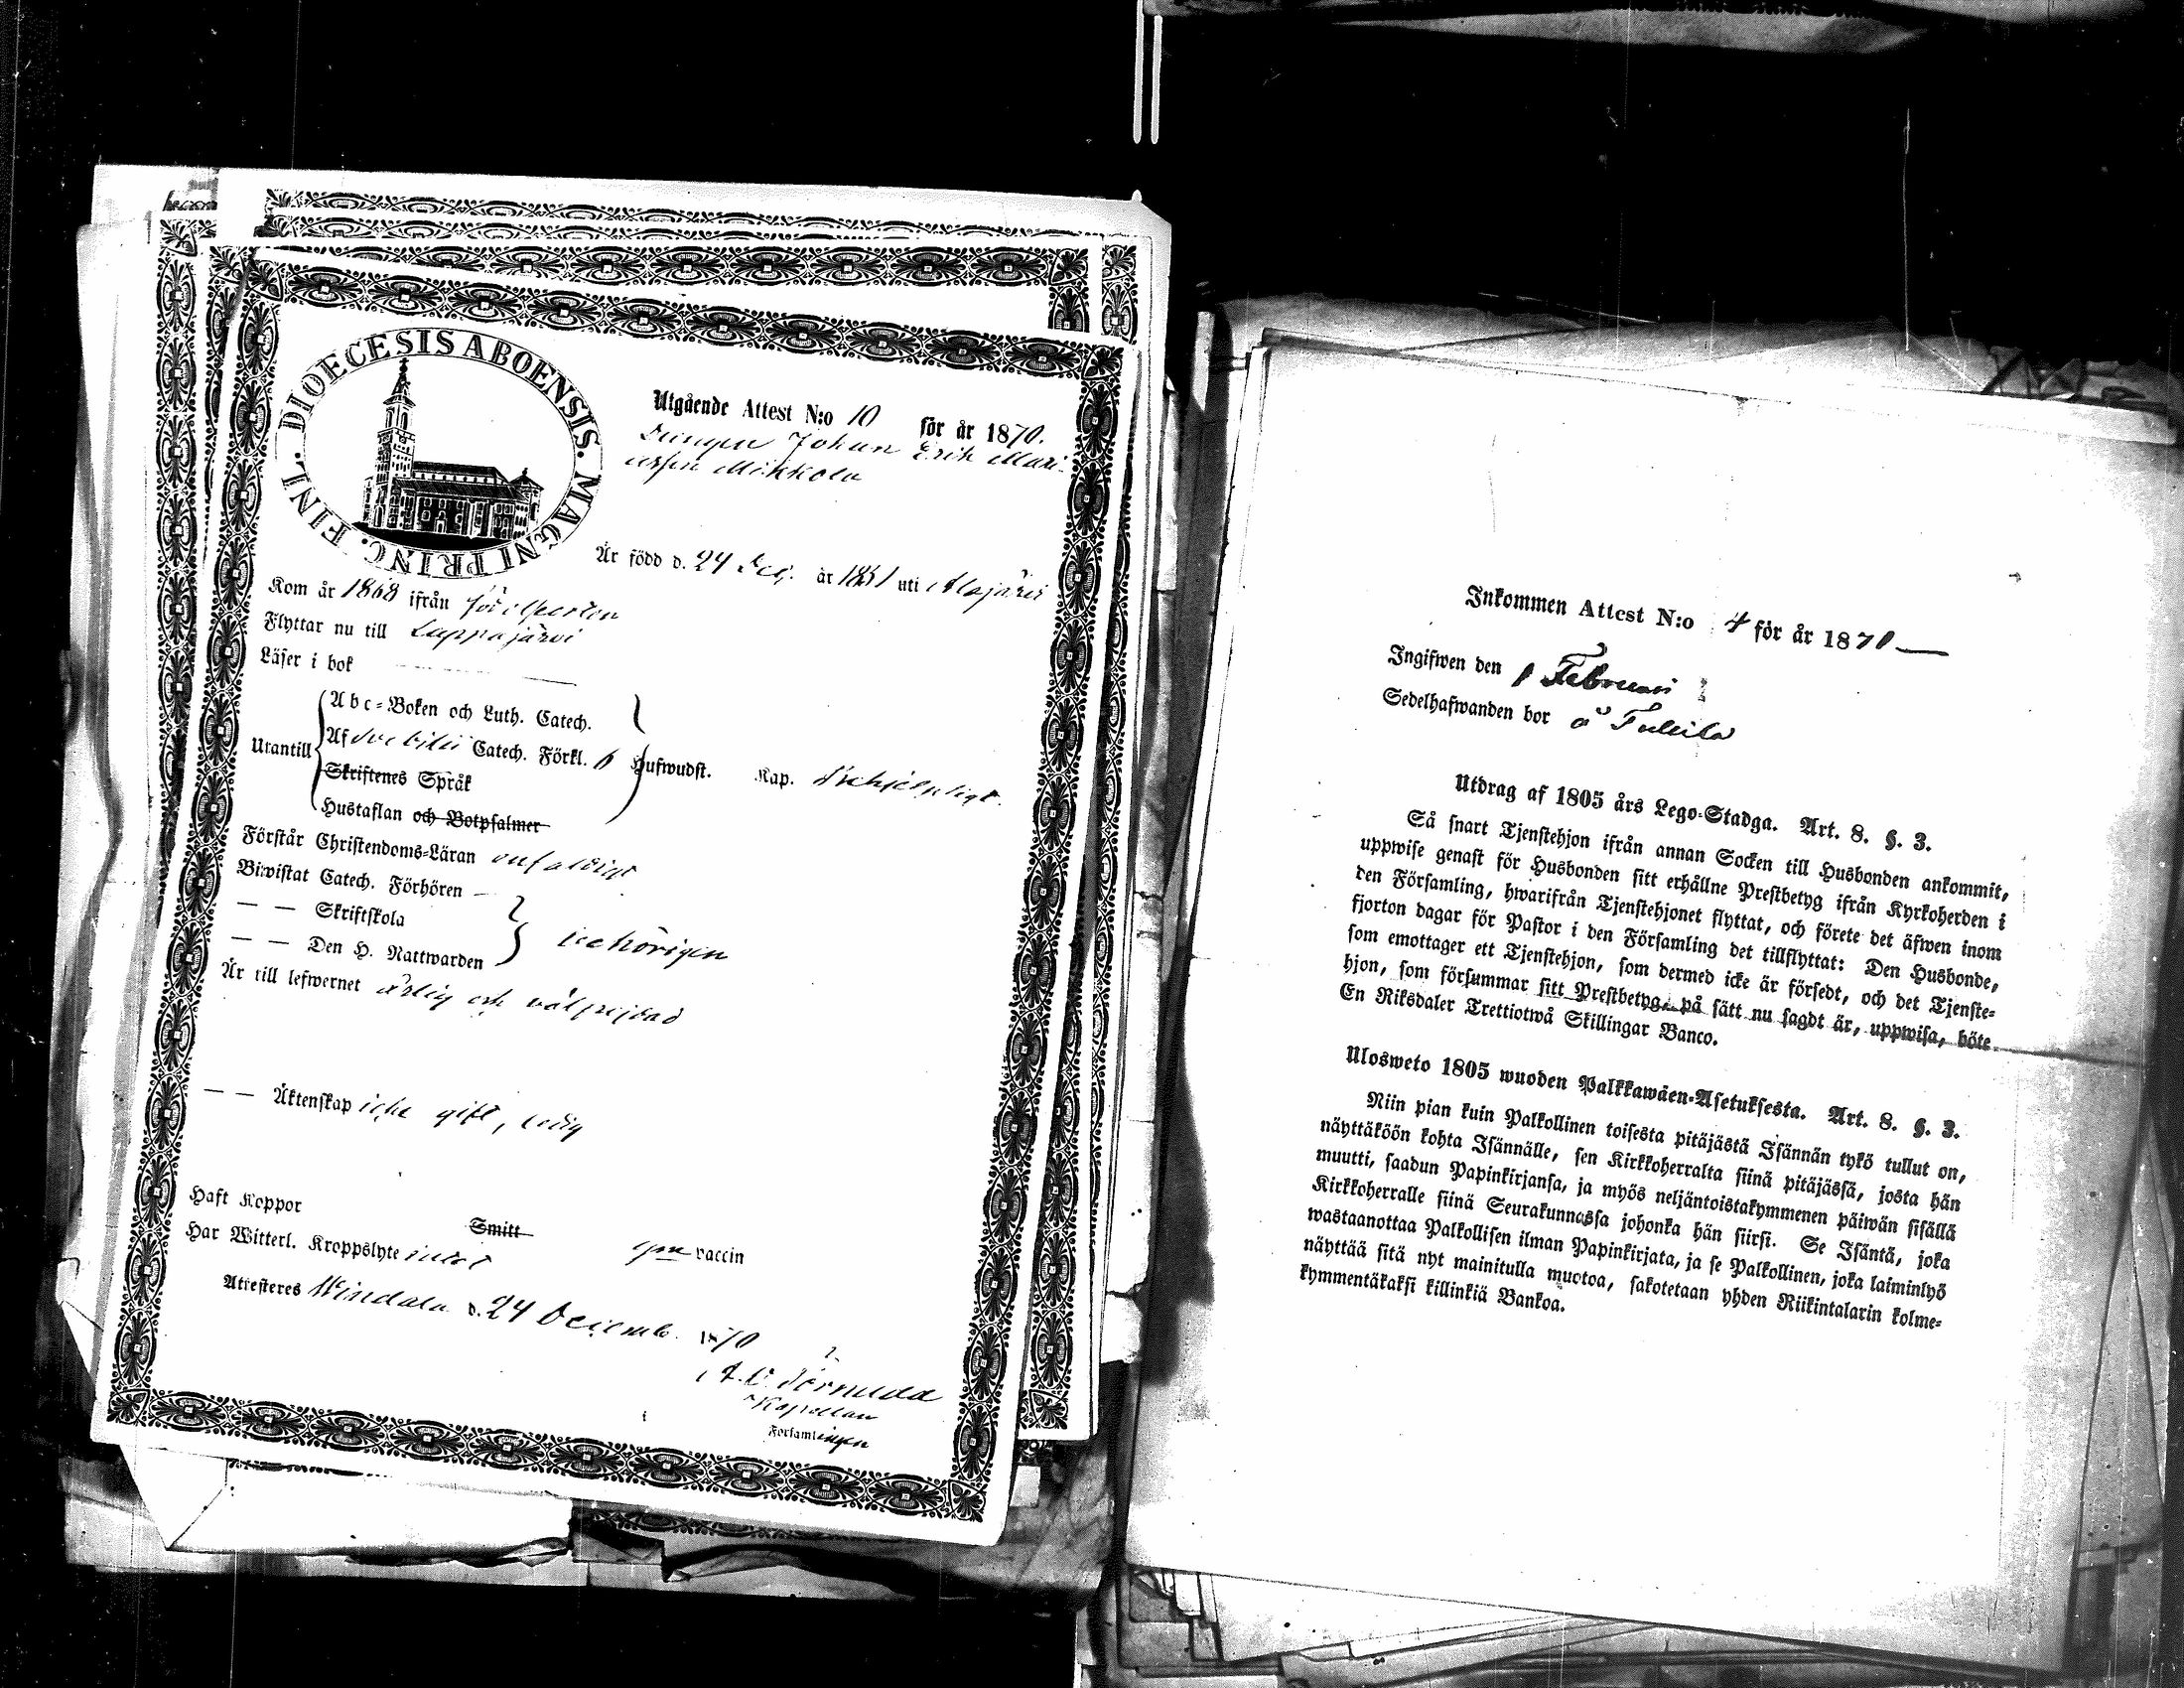 DIOECESIS ABOENSIS. MAGNI PRINC. FINL.
Utgående Attest N:o 10 för år 1870.
Drengen Johan Erik Mari-
Mikkola
Är född d. 24 år 1851 uti Alajärvi
Kom år 1868 ifrån
Flyttar nu till Lappajärvi
Läser i bok
Utantill
Abc-Boken och Luth. Catech.
Af Svebilii Catech. Förkl. 6 Hufwudst. Kap.
Skriftenes Språk
Hustaflan och Botpsalmer
Förstår Christendoms-Läran enfaldigt
Biwistat Catech. Förhören —
— — Skriftskola
— — Den H. Nattwarden
behörigen
Är till lefwernet ärlig och välfrejdad
— — Äktenskap icke gift, ledig
Haft Koppor
Smitt
gm vaccin
Har Witterl. Kroppslyte intet
Attesteres Windala d. 24 Decemb. 1870
Kapellan
i Församlingen
Inkommen Attest N:o 4 för år 1871 —
Ingifwen den 1 Februari
Sedelhafwanden bor å
Utdrag af 1805 års Lego-Stadga. Art. 8. §. 3.
Så snart Tjenstehjon ifrån annan Socken till Husbonden ankommit,
uppwise genast för Husbonden sitt erhållne Prestbetyg ifrån Kyrkoherden i
den Församling, hwarifrån Tjenstehjonet flyttat, och förete det äfwen inom
fjorton dagar för Pastor i den Församling det tillflyttat: Den Husbonde,
som emottager ett Tjenstehjon, som dermed icke är försedt, och det Tjenste-
hjon, som försummar sitt Prestbetyg, på sätt nu sagdt är, uppwisa, böte
En Riksdaler Trettiotwå Skillingar Banco.
Ulosweto 1805 wuoden Palkkawäen-Asetuksesta. Art. 8. §. 3.
Niin pian kuin Palkollinen toisesta pitäjästä Isännän tykö tullut on,
näyttäköön kohta Isännälle, sen Kirkkoherralta siinä pitäjässä, josta hän
muutti, saadun Papinkirjansa, ja myös neljäntoistakymmenen päiwän sisällä
Kirkkoherralle siinä Seurakunnassa johonka hän siirsi. Se Isäntä, joka
wastaanottaa Palkollisen ilman Papinkirjata, ja se Palkollinen, joka laiminlyö
näyttää sitä nyt mainitulla muotoa, sakotetaan yhden Riikintalarin kolme-
kymmentäkaksi killinkiä Bankoa.